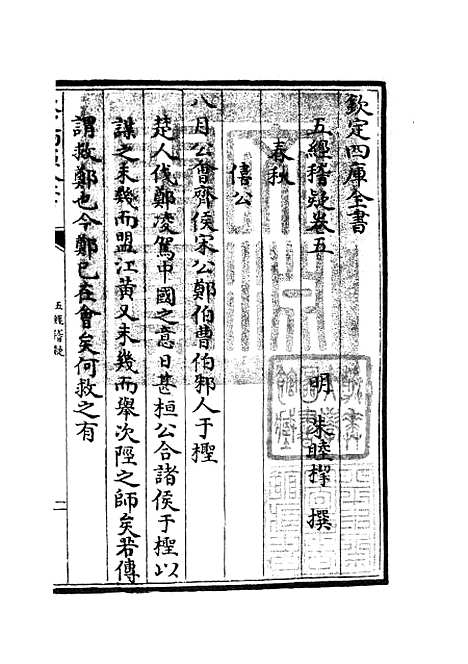 欽定四庫全書
五經稽疑卷五
明 朱睦㮮 撰
春秋
僖公
八月公會齊侯宋公鄭伯曹伯邾人于檉
楚人伐鄭凌駕中國之意日甚桓公合諸侯于檉以
謀之未幾而盟江黄又未幾而舉次陘之師矣若傳
謂救鄭也今鄭已在會矣何救之有
五經稽疑